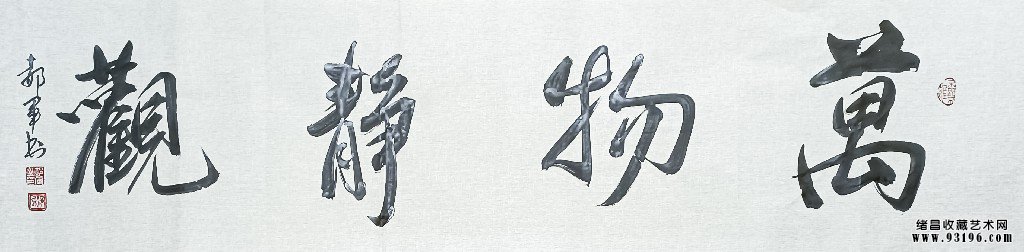 萬物靜觀
郝軍書
绪昌收藏艺术网
www.93196.com